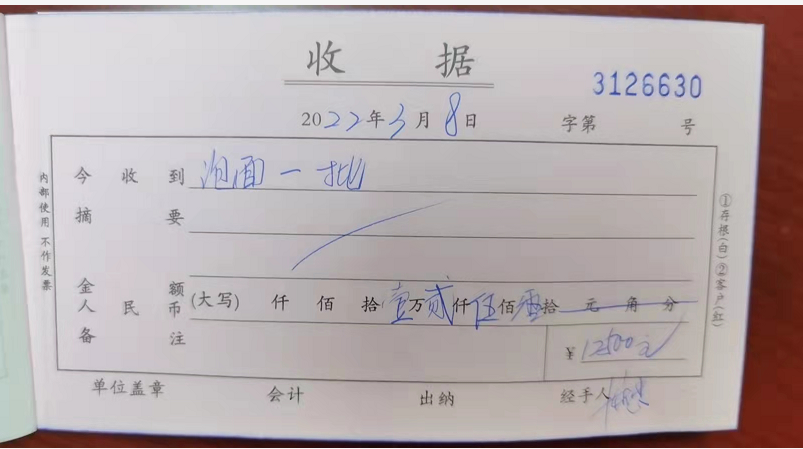 收 据
3126630
2022年3月8日 字第 号
今收到 泡面一批
摘要
金额 人民币 (大写) 仟 佰 拾壹万贰仟伍佰零拾 元 角 分
备注 ¥12500元
单位盖章 会计 出纳 经手人
内部使用 不作发票
①存根(白)②客户(红)